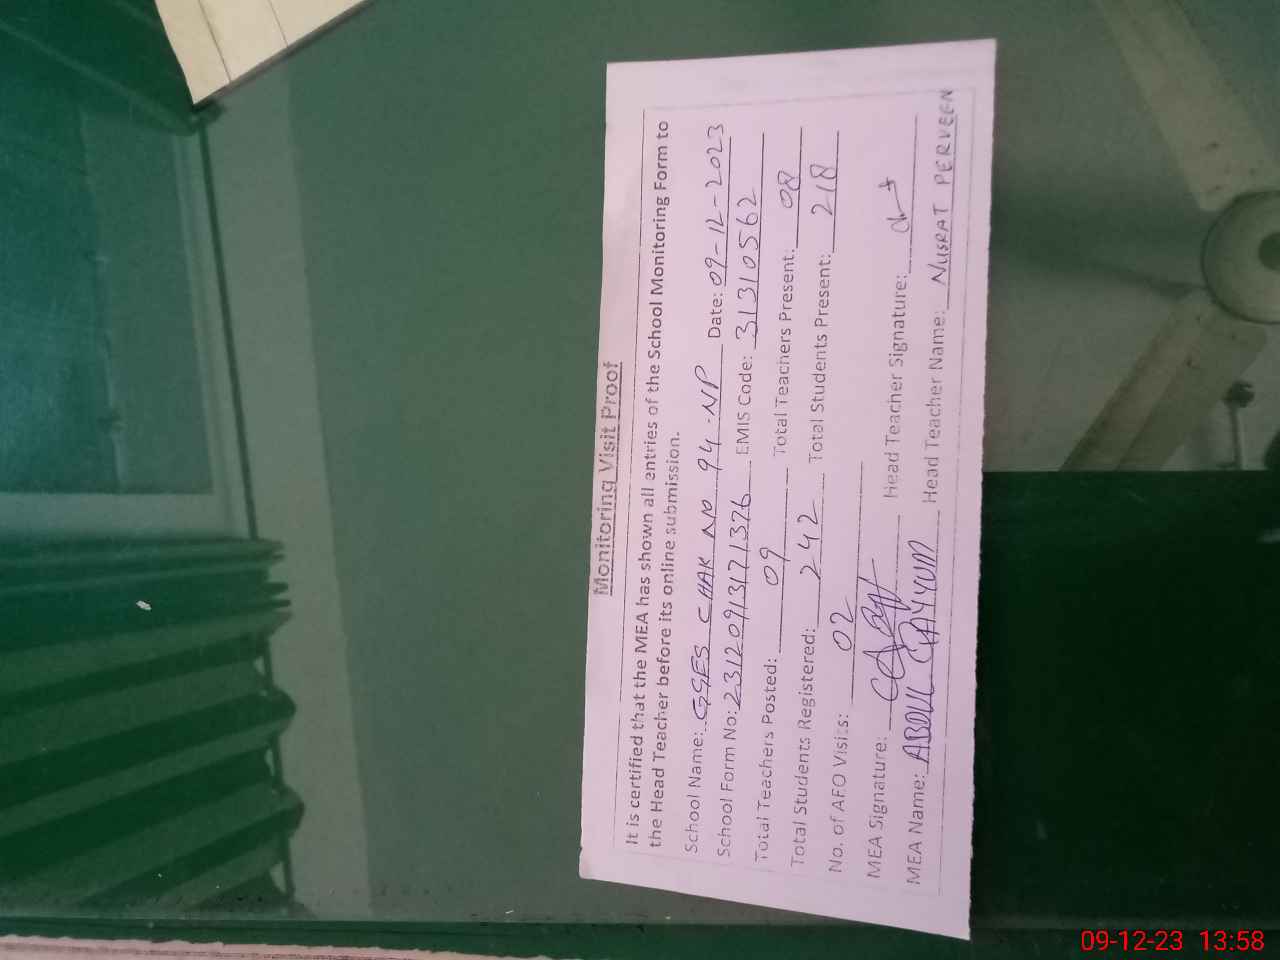 Monitoring Visit Proof
It is certified that the MEA has shown all entries of the School Monitoring Form to
the Head Teacher before its online submission.
School Name: GGES CHAK NO 94-NP Date: 09-12-2023
School Form No: 23120913171376 EMIS Code: 31310562
Total Teachers Posted: 09 Total Teachers Present: 08
Total Students Registered: 242 Total Students Present: 218
No. of AEO Visits: 02
MEA Signature: Head Teacher Signature:
MEA Name: ABDUL QAYYUM Head Teacher Name: NUSRAT PERVEEN
09-12-23 13:58